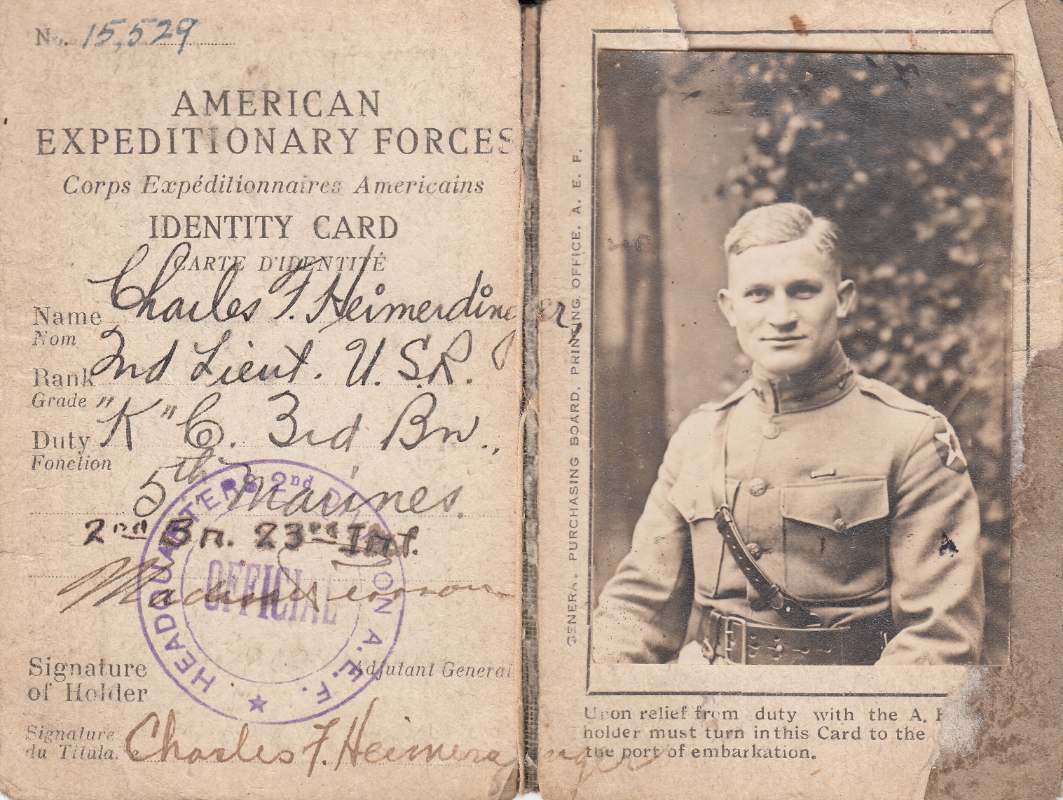 No. 15,529
AMERICAN
EXPEDITIONARY FORCES
Corps Expéditionnaires Americains
IDENTITY CARD
CARTE D'IDENTITÉ
Name Charles F. Heimerdinger,
Nom
Rank 2nd Lieut. U.S.R.
Grade
Duty "K" C. 3rd Bn.,
Fonction
5th Marines.
2nd Bn. 23rd Inf.
HEADQUARTERS 2nd DIVISION A.E.F.
OFFICIAL
Adjutant General
Signature
of Holder
Signature
du Titula.
Charles F. Heimerdinger
GENERAL PURCHASING BOARD, PRINTING OFFICE, A. E. F.
Upon relief from duty with the A.
holder must turn in this Card to the
the port of embarkation.